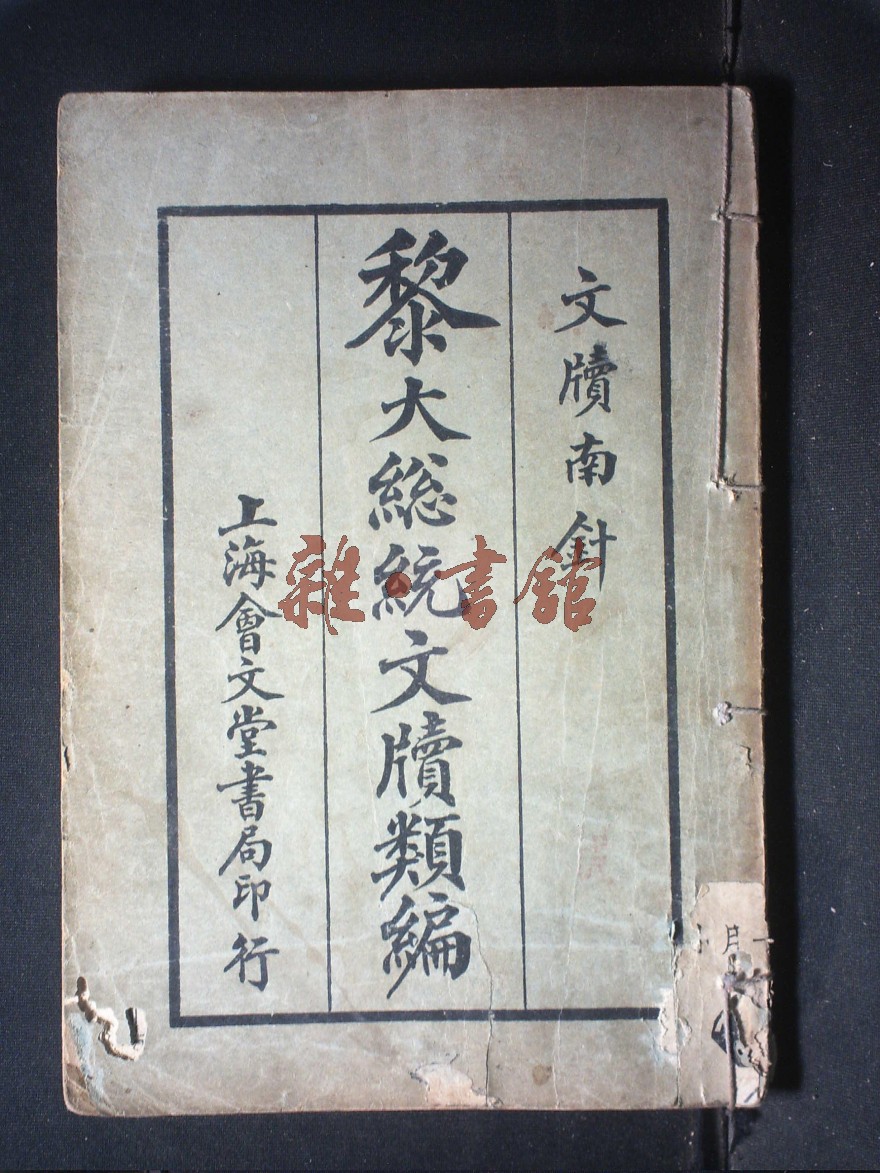 文牘南針
黎大総統文牘類編
上海會文堂書局印行
雜·書舘
月